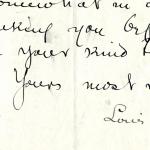 somewhat in a
asking you
your kind
Yours most
Louis